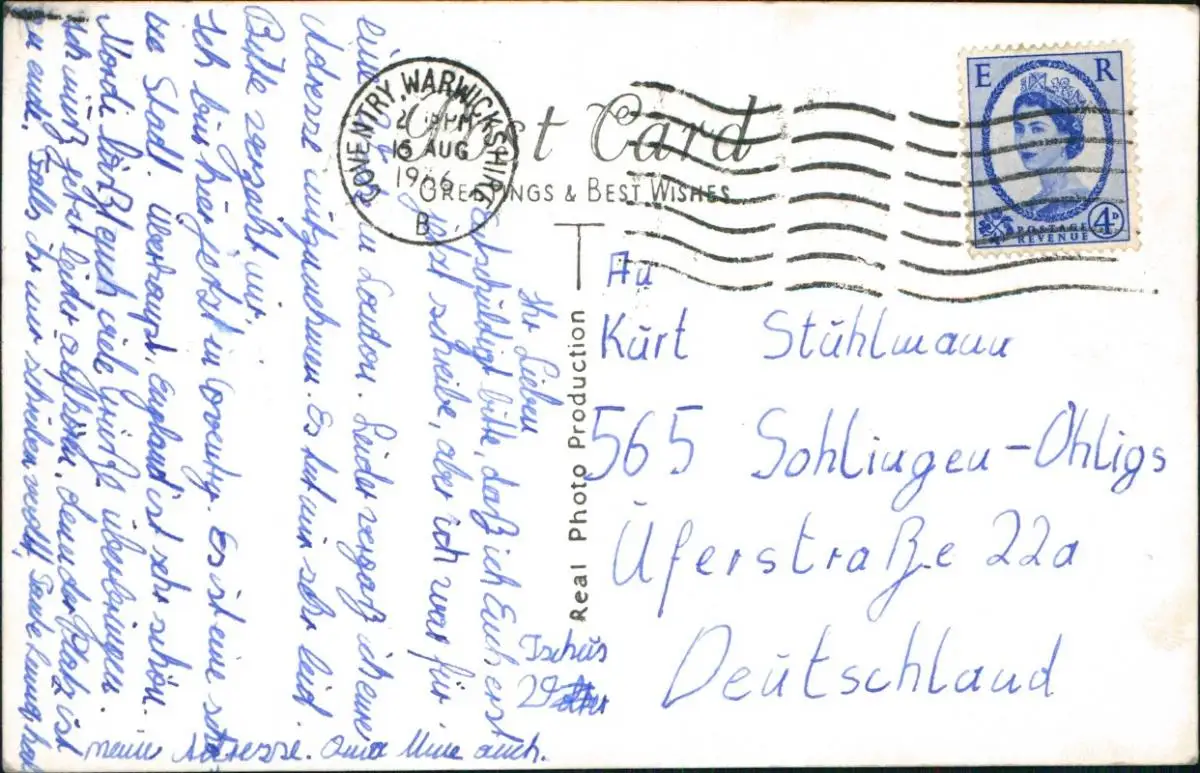 Post Card
GREETINGS & BEST WISHES
COVENTRY, WARWICKSHIRE
15 AUG
1966
B
E R
POSTAGE
REVENUE
4D
Real Photo Production
An
Kurt Stühlmann
565 Sohlingen-Ohligs
Uferstraße 22a
Deutschland
Ihr Lieben
Entschuldigt bitte, daß ich Euch erst
jetzt schreibe, aber ich war für
eine in London. Leider vergaß ich eure
Adresse mitzunehmen. Es tut mir sehr leid.
Bitte verzeiht mir,
Ich bin hier jetzt in Coventry. Es ist eine
Stadt. Überhaupt, England ist sehr schön.
läßt euch viele Grüße überbringen
Ich muß jetzt leider aufhören, denn der Platz ist
zu ende. Falls ihr mir schreiben wollt, Tante
meine Adresse. Oma auch.
Tschüs